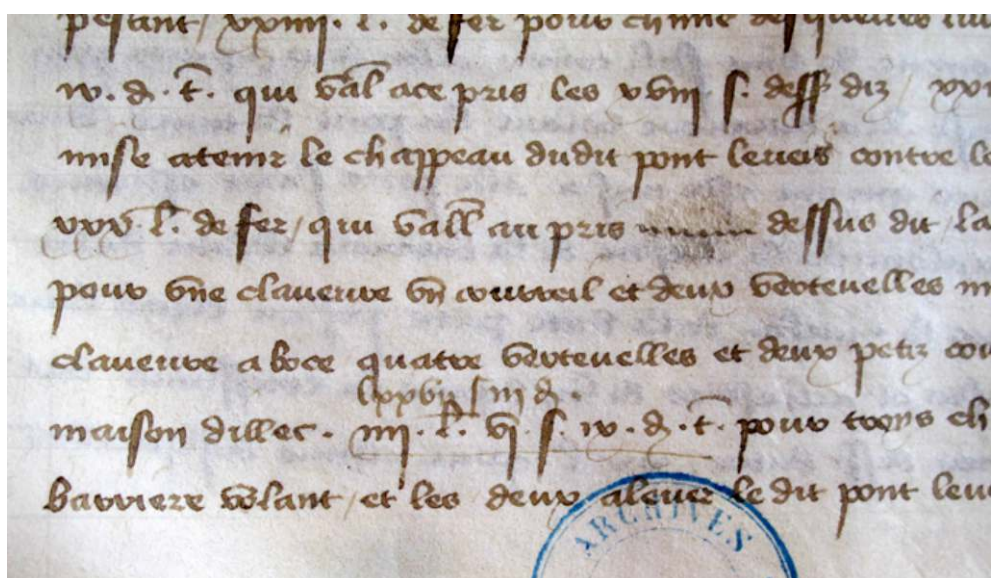 pesant / xxiiii. l. de fer pour chune desquelles
iv. d. t. qui val ace pris les xviii s. dess diz / xxi
mise atenir le chappeau dudit pont leveis contre le
xxv l. de fer / qui vall au pris dessus dit / la
pour une claveure un courreil et deux vertevelles
claveure a boce quatre vertevelles et deux petiz cou
lxxvii s iii d.
maison dillec. iiii. l. vi. s. iv. d. t. pour troys ch
barriere volant / et les deux alever le dit pont leve
ARCHIVES